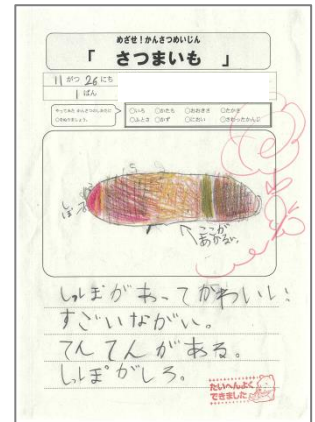 めざせ！かんさつめいじん
「 さつまいも 」
11がつ 26にち
1ばん
○いろ ○かたち ○おおきさ ○たかさ
○ふとさ ○かず ○におい ○さわったかんじ
しっぽ
ここが
あかるい。
しっぽがあってかわいい！
すごいながい。
てんてんがある。
しっぽがしろ。
たいへんよく
できました